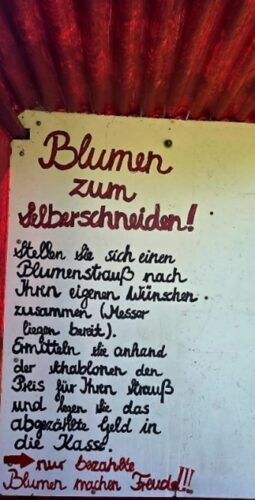 Blumen
zum
Selberschneiden!
Stellen Sie sich einen
Blumenstrauß nach
Ihren eigenen Wünschen
zusammen (Messer
liegen bereit).
Ermitteln Sie anhand
der Schablonen den
Preis für Ihren Strauß
und legen Sie das
abgezählte Geld in
die Kasse.
nur bezahlte
Blumen machen Freude!!!